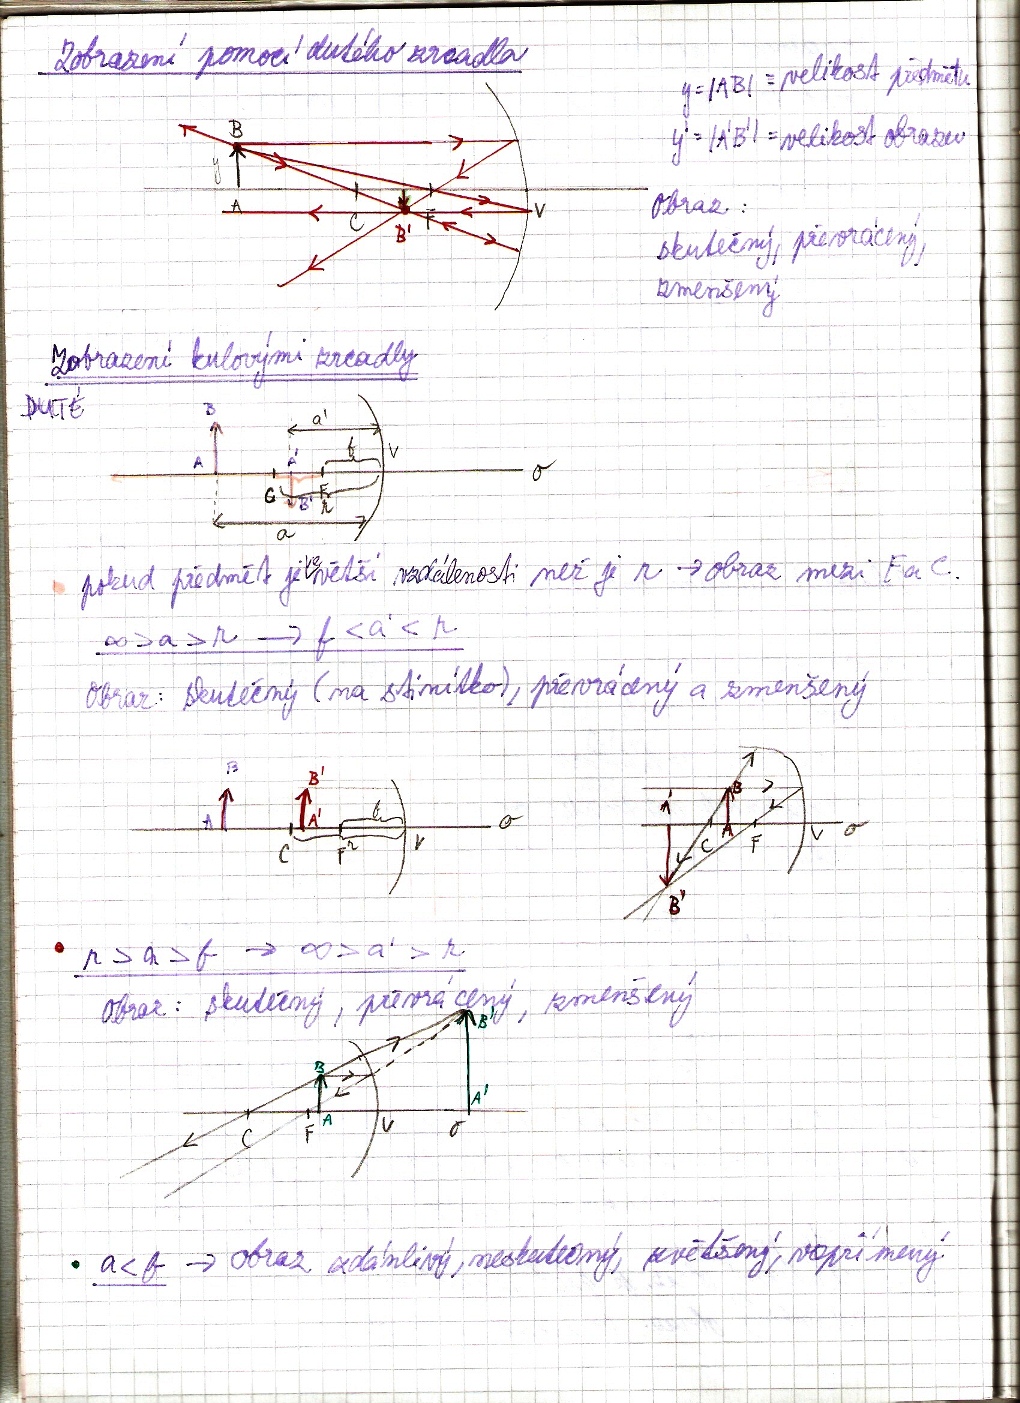 Zobrazení pomocí dutého zrcadla
y=|AB| = velikost předmětu
y'=|A'B'| = velikost obrazu
Obraz :
skutečný, převrácený,
zmenšený
B
y
A
C
B'
F
V
Zobrazení kulovými zrcadly
DUTÉ
B
a'
f
V
A
A'
σ
C
B'
F
r
a
pokud předmět je ve větší vzdálenosti než je r → obraz mezi F a C.
∞ > a > r → f < a' < r
Obraz: skutečný (na stínítko), převrácený a zmenšený
B
B'
A
A'
f
σ
C
F
r
V
A'
B
C
A
F
V
σ
B'
r > a > f → ∞ > a' > r
Obraz: skutečný, převrácený, zmenšený
B'
B
A'
C
F
A
V
σ
a < f → obraz zdánlivý, neskutečný, zvětšený, vzpřímený